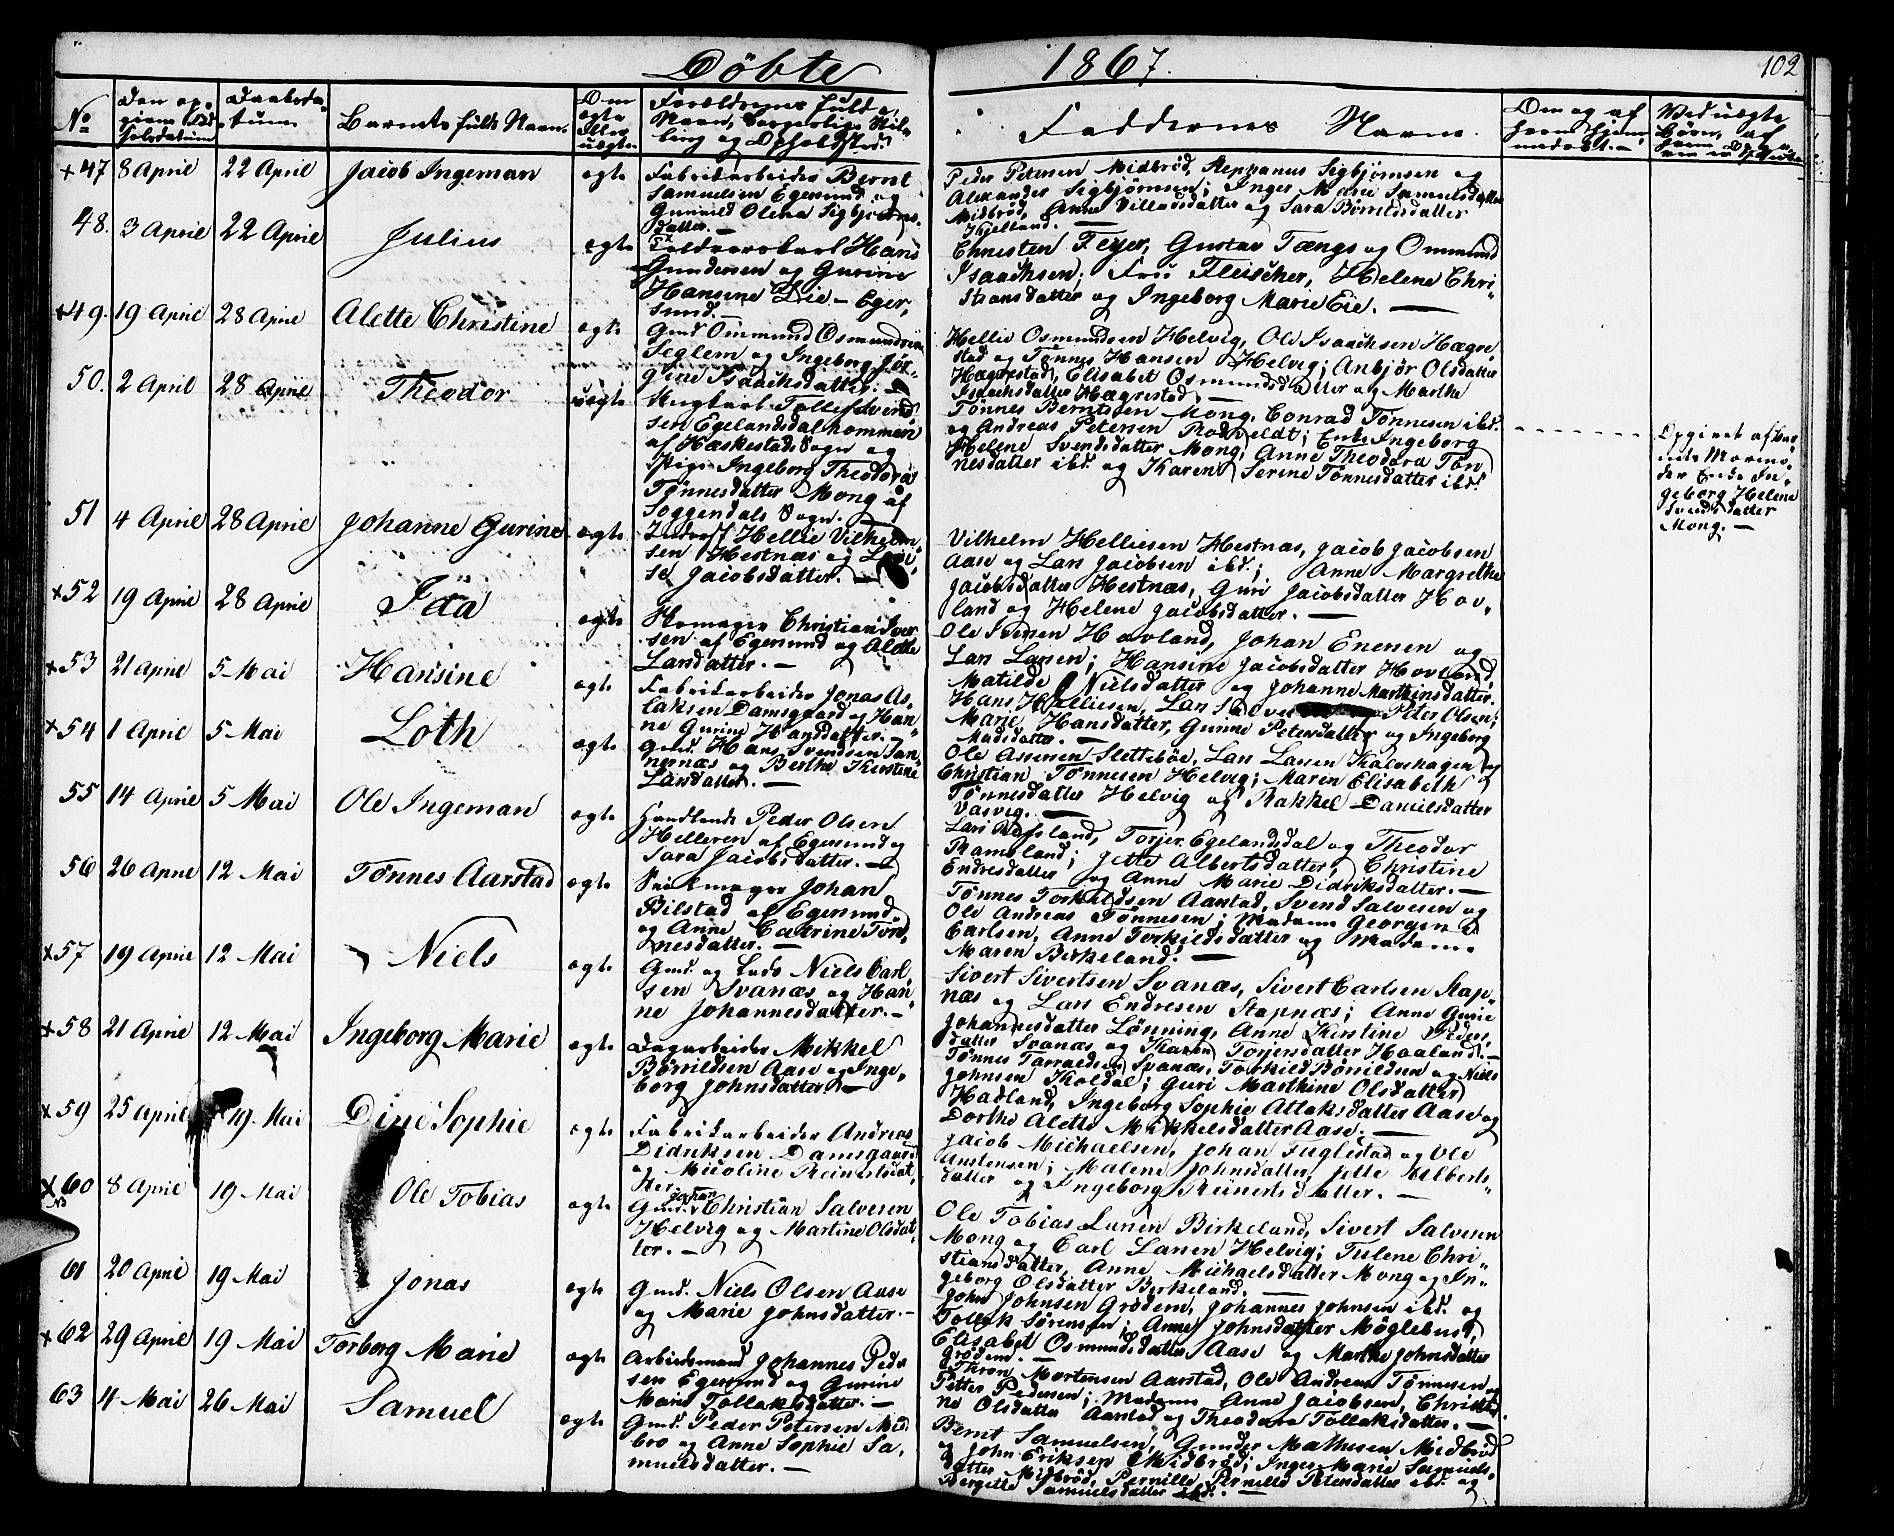 Döbte 1867. 102
No
Den op-
given Fød
selsdatum
Daabsda-
tum
Barnets fulde Navn.
Om
ægte
eller
uægte
Forældrenes fulde
Navn, borgerlig Stil-
ling og Opholdsted.
Faddernes Navn.
Om og af
hvem hjem-
medøbt.
Ved uægte
Børn, af
hvem
+47 8 April 22 April Jacob Ingeman ægte
Fabrikarbeider Bernt
Samuelsen Egersund og
Gunnild Olena Sigbjørns-
datter. —
Peder Petersen Midbrød, Sigbjørnsen og
Alexander Sigbjørnsen; Inger Marie Samuelsdatter
Midbrød, Anne Villadsdatter og Sara Børrildsdatter
Kjelland. —
48. 3 April 22 April Julius ægte
Hans
Gundersen og Gurine
Hansine Lie — Eger-
sund. —
Christen Feyer, Gustav Tængs og Ommund
Isaachsen; Fru Fleischer, Helene Chri-
stiansdatter og Ingeborg Marie Eie. —
+49. 19 April 28 April Alette Christine ægte
Gmd. Ommund Osmundsen
Seglem og Ingeborg Jør-
gine Isaachsdatter. —
Hellie Osmundsen Helvig, Ole Isaachsen Hægre-
stad og Tønnes Hansen Helvig; Anbjør Olsdatter
Hægrestad, Elisabet Osmundsdatter og Marthe
Isaachsdatter Hægrestad. —
50. 2 April 28 April Theodor uægte
Ungkarl Tollef Svend-
sen Egelandsdal kommen
af Hæskestad Sogn og
Pige Ingeborg Theodora
Tønnesdatter Mong af
Soggendals Sogn. —
Tønnes Berntsen Mong, Conrad Tønnesen ibd.
og Andreas Petersen Rodveldt; Enke Ingeborg
Helene Svendsdatter Mong, Anne Theodora Tøn-
nesdatter ibd. og Karen Serine Tønnesdatter ibd.
Opgivet af Bar-
nets Mormo-
der Enke In-
geborg Helene
Svendsdatter
Mong. —
51 4 April 28 April Johanne Gurine ægte
Inderst Hellie Vilhelm-
sen Hestnæs og Loui-
se Jacobsdatter. —
Vilhelm Helliesen Hestnæs, Jacob Jacobsen
Aase og Lars Jacobsen ibd.; Anne Margrethe
Jacobsdatter Hestnæs, Guri Jacobsdatter Hov-
land og Helene Jacobsdatter. —
+52 19 April 28 April Ida ægte
Skomager Christian Iver-
sen af Egersund og Alette
Larsdatter. —
Ole Iversen Hovland, Johan Enersen og
Lars Larsen; Hansine Jacobsdatter Hovland,
Matilde Nielsdatter og Johanne Marthinsdatter.
+53 21 April 5 Mai Hansine ægte
Fabrikarbeider Jonas As-
laksen Damsgaard og Han-
ne Gurine Hansdatter. —
Hans Helliesen, Lars og Peter Olsen;
Marie Hansdatter, Gurine Petersdatter og Ingeborg
Madsdatter. —
+54 1 April 5 Mai Loth ægte
Gmd. Hans Svendsen San-
nernæs og Berthe Kirstine
Larsdatter. —
Ole Assersen Slettebøe, Lars Larsen Kalvehagen og
Christian Tønnesen Helvig; Maren Elisabeth
Tønnesdatter Helvig og Rakkel Danielsdatter
Vasvig. —
55 14 April 5 Mai Ole Ingeman ægte
Handlende Peder Olsen
Helleren af Egersund og
Sara Jacobsdatter. —
Lars Refsland, Torjer Egelandsdal og Theodor
Ramsland; Jette Albertsdatter, Christine
Endresdatter og Anne Marie Didriksdatter. —
56 26 April 12 Mai Tönnes Aarstad ægte
Johan
Bilstad af Egersund
og Anne Catrine Tøn-
nesdatter. —
Tønnes Torkildsen Aarstad, Svend Salvesen og
Ole Andreas Tønnesen; Madame Georgine
Carlsen, Anne Torkildsdatter og Madame
Maren Birkeland. —
+57 19 April 12 Mai Niels ægte
Gmd. og Lods Niels Carl-
sen Svanæs og Han-
ne Johannesdatter. —
Sivert Sivertsen Svanæs, Sivert Carlsen Stap-
næs og Lars Endresen Stapnæs; Anne Gurie
Johannesdatter Lønning, Anne Kirstine Peders-
datter Svanæs og Karen Torjersdatter Haaland. —
+58 21 April 12 Mai Ingeborg Marie ægte
Dagarbeider Mikkel
Børrildsen Aase og Inge-
borg Johnsdatter. —
Tønnes Tarraldsen Svanæs, Torkild Børrildsen og Niels
Johnsen Koldal; Guri Marthine Olsdatter
Hadland, Ingeborg Sophie Atlaksdatter Aase og
Dorthe Alette Mikkelsdatter Aase. —
+59 25 April 19. Mai Dine Sophie ægte
Fabrikarbeider Andreas
Didriksen Damsgaard
og Nicoline Reinertsdat-
ter. —
Jacob Michaelsen, Johan Fuglestad og Ole
Austensen; Malene Johnsdatter, Jette Alberts-
datter og Ingeborg Reinertsdatter. —
+60 8 April 19 Mai Ole Tobias ægte
NB
Gmd. Johan Christian Salvesen
Helvig og Martine Olsdat-
ter. —
Ole Tobias Larsen Birkeland, Sivert Salvesen
Mong og Carl Larsen Helvig; Tulene Chri-
stiansdatter, Anne Michaelsdatter Mong og In-
geborg Olsdatter Birkeland. —
61 20 April 19 Mai Jonas ægte
Gmd. Niels Olsen Aase
og Marie Johnsdatter. —
John Johnsen Grødem, Johannes Johnsen ibd. og
Tollak Sørensen; Anne Johnsdatter Møglebust,
Elisabet Osmundsdatter Aase og Marthe Johnsdatter
Grødem. —
+62 29 April 19 Mai Torborg Marie ægte
Arbeidsmand Johannes Peder-
sen Egersund og Gurine
Marie Tollaksdatter. —
Thron Mortensen Aarstad, Ole Andreas Tønnesen og
Petter Pedersen; Madame Anne Jacobsen, Christi-
ne Olsdatter Aarstad og Theodora Tollaksdatter. —
63 4 Mai 26 Mai Samuel ægte
Gmd. Peder Petersen Mid-
brø og Anne Sophie Sa-
muelsdatter. —
Bernt Samuelsen, Gunder Mathiesen Midbrød
og John Eriksen Midbrød; Inger Marie Samuels-
datter Midbrød, Pernille Petersdatter ibd. og
Bergitte Samuelsdatter ibd. —